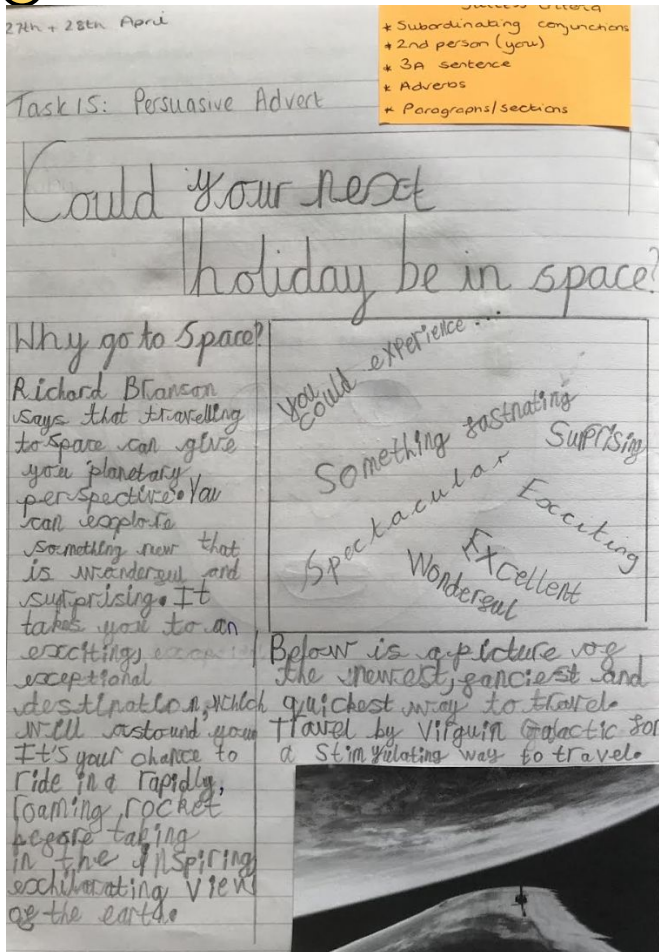 27th + 28th April
Success Criteria
* Subordinating conjunctions
* 2nd person (you)
* 3A sentence
* Adverbs
* Paragraphs/sections
Task 15: Persuasive Advert
Could your next
holiday be in space?
Why go to Space?
Richard Branson
says that travelling
to space can give
you planetary
perspective. You
can explore
something new that
is wonderful and
surprising. It
takes you to an
exciting,
exceptional
destination, which
will astound you.
It's your chance to
ride in a rapidly,
roaming rocket
before taking
in the inspiring
exhilarating view
of the earth.
you
could experience...
Something fastnating
Surprising
Spectacular
Excciting
Excellent
Wonderful
Below is a picture of
the newest, fanciest and
quickest way to travel.
Travel by Virguin Galactic for
a Stimyulating way to travel.